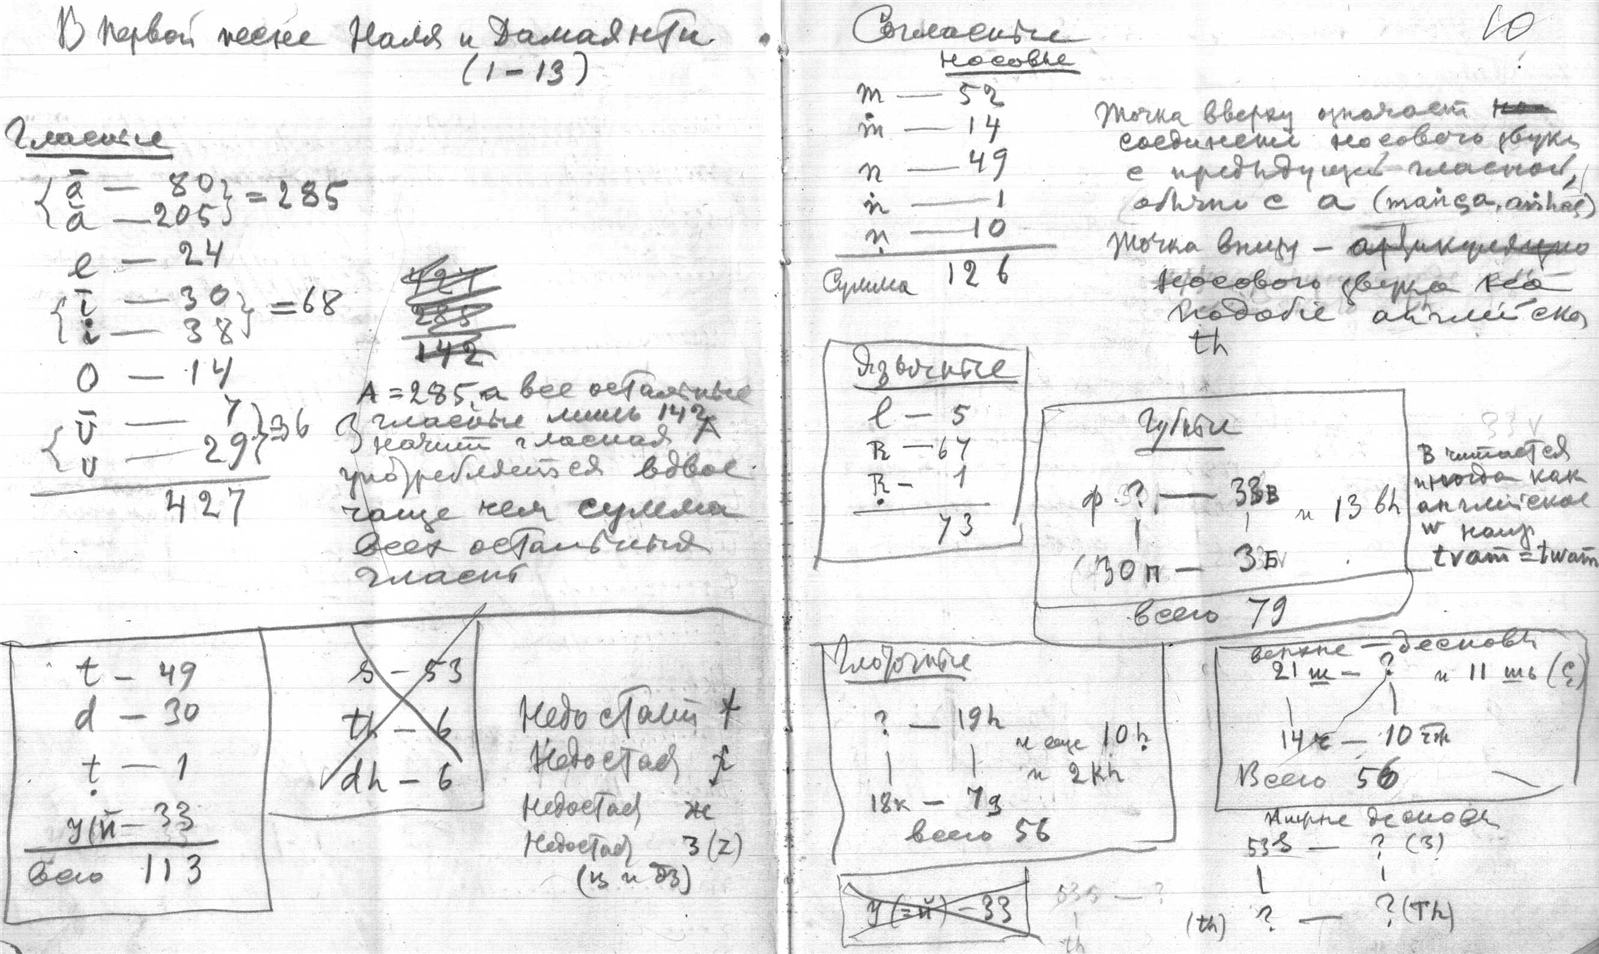 В первой песне Наля и Дамаянти.
(1 – 13)
Гласные
ā — 80
ă — 205
= 285
e — 24
ī — 30
i — 38
= 68
o — 14
ū — 7
u — 29
= 36
427
427
285
142
А = 285, а все остальные
гласные лишь 142
Значит гласная А
употребляется вдвое
чаще чем сумма
всех остальных
гласн
t — 49
d — 30
ṭ — 1
y (й — 33
всего 113
s — 53
th — 6
dh — 6
Недостает
Недостает
Недостает ж
Недостает З (z)
(ц и дз)
10
Согласные
носовые
m — 52
ṁ — 14
n — 49
ṅ — 1
ṇ — 10
Сумма 126
Точка вверху означает
соединение носового звука
с предыдущей гласной,
обычно с а
Точка внизу – артикуляцию
носового звука на
подобие английско
th
Язычные
l — 5
R — 67
Ṛ — 1
73
Губные
ф ? — 33в и 13 bh
30 п — 3Б
всего 79
В читается
иногда как
английское
w напр.
tvam = twam
Глоточные
? — 19h
и еще 10ḥ
и 2kh
18к — 7g
всего 56
верхне – десновы
21 ш — ? и 11 шь (ç)
14 ч — 10 чж
Всего 56
Нижне десновы
53 s — ? (З)
(th) ? — ? (Th)
y (=й) – 33
53s — ?
th